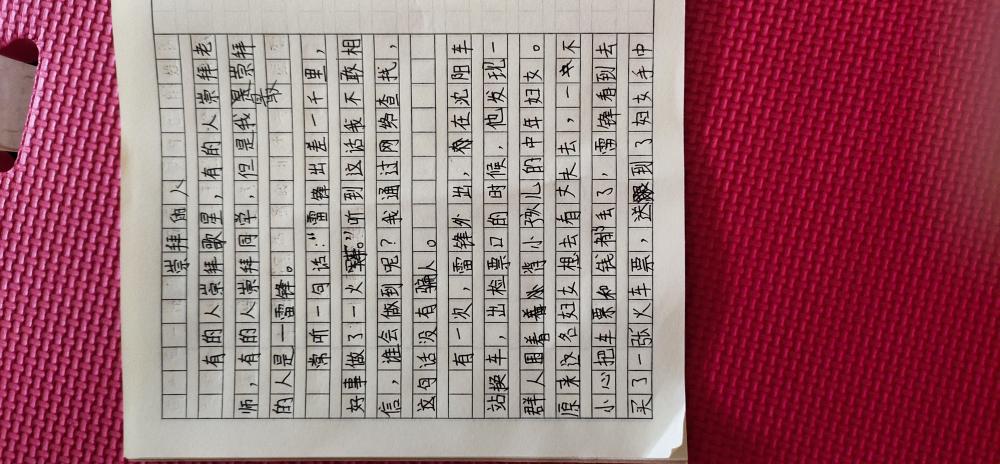 崇拜的人
有的人崇拜歌星，有的人崇拜老
师，有的人崇拜同学，但是我最崇拜
的人是—雷锋。
常听一句话：“雷锋出差一千里，
好事做了一火车。”听到这话我不敢相
信，谁会做到呢？我通过网络查找，
这句话没有骗人。
有一次，雷锋外出，在沈阳车
站换车，出检票口的时候，他发现一
群人围着背小孩儿的中年妇女。
原来这名妇女想去看丈夫去，一不
小心把车票和钱都丢了，雷锋看到去
买了一张火车票，送到了妇女手中